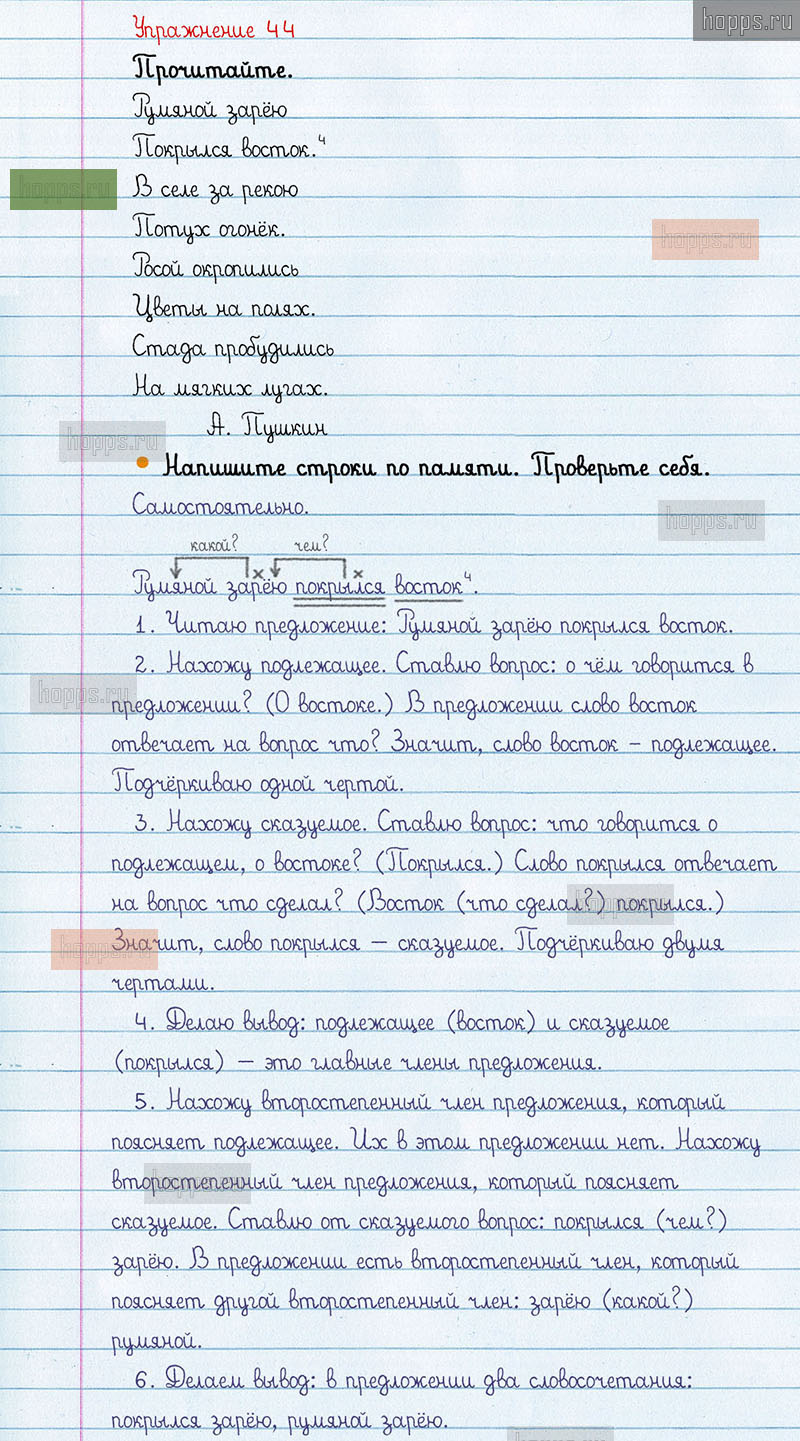 hopps.ru
Упражнение 44
Прочитайте.
Румяной зарёю
Покрылся восток.⁴
hopps.ru
В селе за рекою
Потух огонёк.
hopps.ru
Росой окропились
Цветы на полях.
Стада пробудились
На мягких лугах.
А. Пушкин
hopps.ru
• Напишите строки по памяти. Проверьте себя.
Самостоятельно.
hopps.ru
какой? чем?
х х
Румяной зарёю покрылся восток⁴.
1. Читаю предложение: Румяной зарёю покрылся восток.
2. Нахожу подлежащее. Ставлю вопрос: о чём говорится в
hopps.ru
предложении? (О востоке.) В предложении слово восток
отвечает на вопрос что? Значит, слово восток – подлежащее.
Подчёркиваю одной чертой.
3. Нахожу сказуемое. Ставлю вопрос: что говорится о
подлежащем, о востоке? (Покрылся.) Слово покрылся отвечает
на вопрос что сделал? (Восток (что сделал?) покрылся.)
hopps.ru
Значит, слово покрылся – сказуемое. Подчёркиваю двумя
hopps.ru
чертами.
4. Делаю вывод: подлежащее (восток) и сказуемое
(покрылся) – это главные члены предложения.
5. Нахожу второстепенный член предложения, который
поясняет подлежащее. Их в этом предложении нет. Нахожу
второстепенный член предложения, который поясняет
hopps.ru
сказуемое. Ставлю от сказуемого вопрос: покрылся (чем?)
зарёю. В предложении есть второстепенный член, который
поясняет другой второстепенный член: зарёю (какой?)
румяной.
6. Делаем вывод: в предложении два словосочетания:
покрылся зарёю, румяной зарёю.
hopps.ru